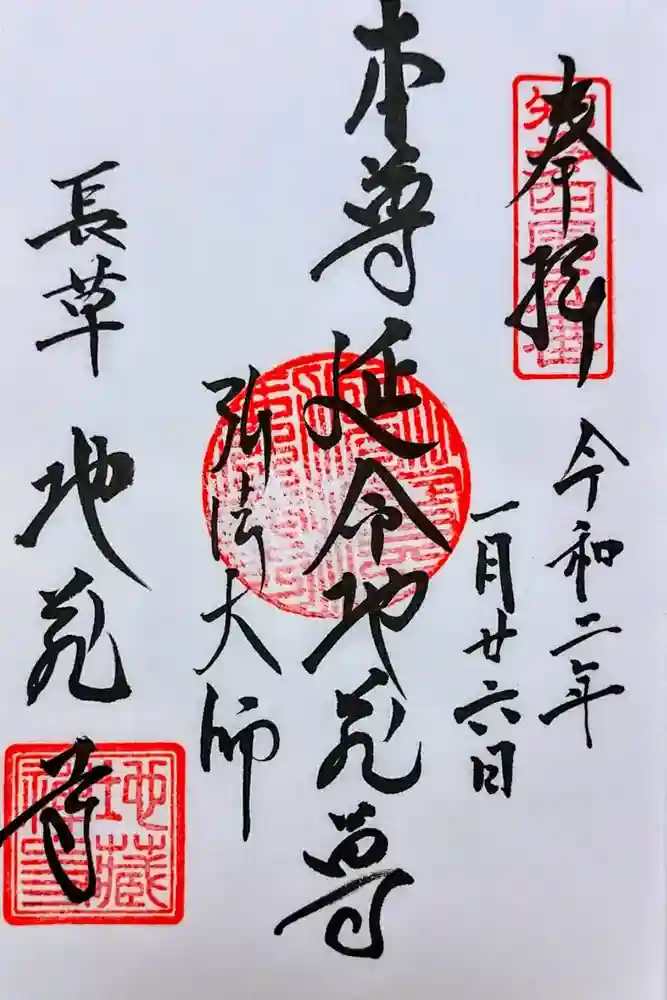 奉拝
令和二年
一月廿六日
本尊 延命地蔵尊
弘法大師
長草 地蔵寺
地藏